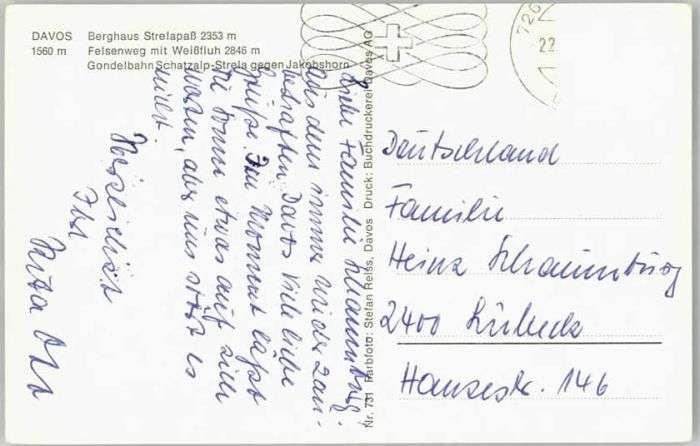 DAVOS Berghaus Strelapaß 2353 m
1560 m Felsenweg mit Weißfluh 2846 m
Gondelbahn Schatzalp-Strela gegen Jakobshorn
Liebe Familie Schaumburg,
aus dem immer wieder zau-
berhaften Davos viele liebe
Grüße. Im Moment läßt
die Sonne etwas auf sich
warten, aber uns stört es
nicht.
Herzlichst
Ihre
Nr. 731 Farbfoto: Stefan Reiss, Davos Druck: Buchdruckerei Davos AG
726
22
Deutschland
Familie
Heinz Schaumburg
2400 Lübeck
Hansestr. 146